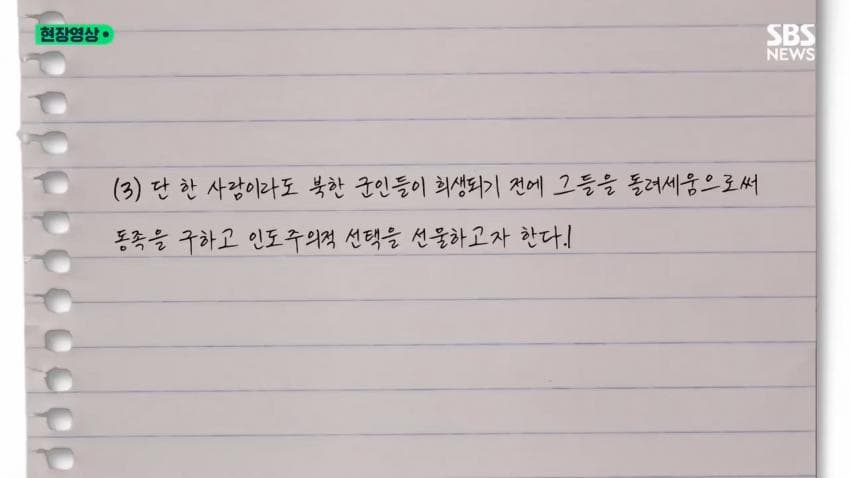 현장영상
SBS
NEWS
(3) 단 한 사람이라도 북한 군인들이 희생되기 전에 그들을 돌려세움으로써
동족을 구하고 인도주의적 선택을 선물하고자 한다.